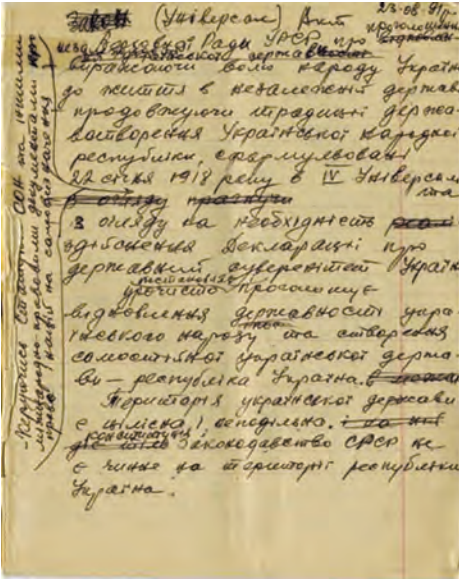 Закон (Універсал) Акт 23-08-91р.
проголошення
незал. Верховної Ради УРСР про
українського держав
Виражаючи волю народу Україн
до життя в незалежній держав
продовжуючи традиції держа-
вотворення Української народної
республіки, сформульовані
22 січня 1918 року в IV Універсалі
в огляду прагнучи та
з огляду на необхідність
здійснення Декларації про
державний суверенітет Україн
урочисто проголошує
відновлення державності укра-
їнського народу та створення
самостійної української держа-
ви — республіка Україна.
Територія української держави
є цілісна і неподільна.
конституція і
законодавство СРСР не
є чинне на території республіки
Україна.
-Керуючись Статутом ООН та іншими
міжнародно-правовими документами про
право націй на самовизначення